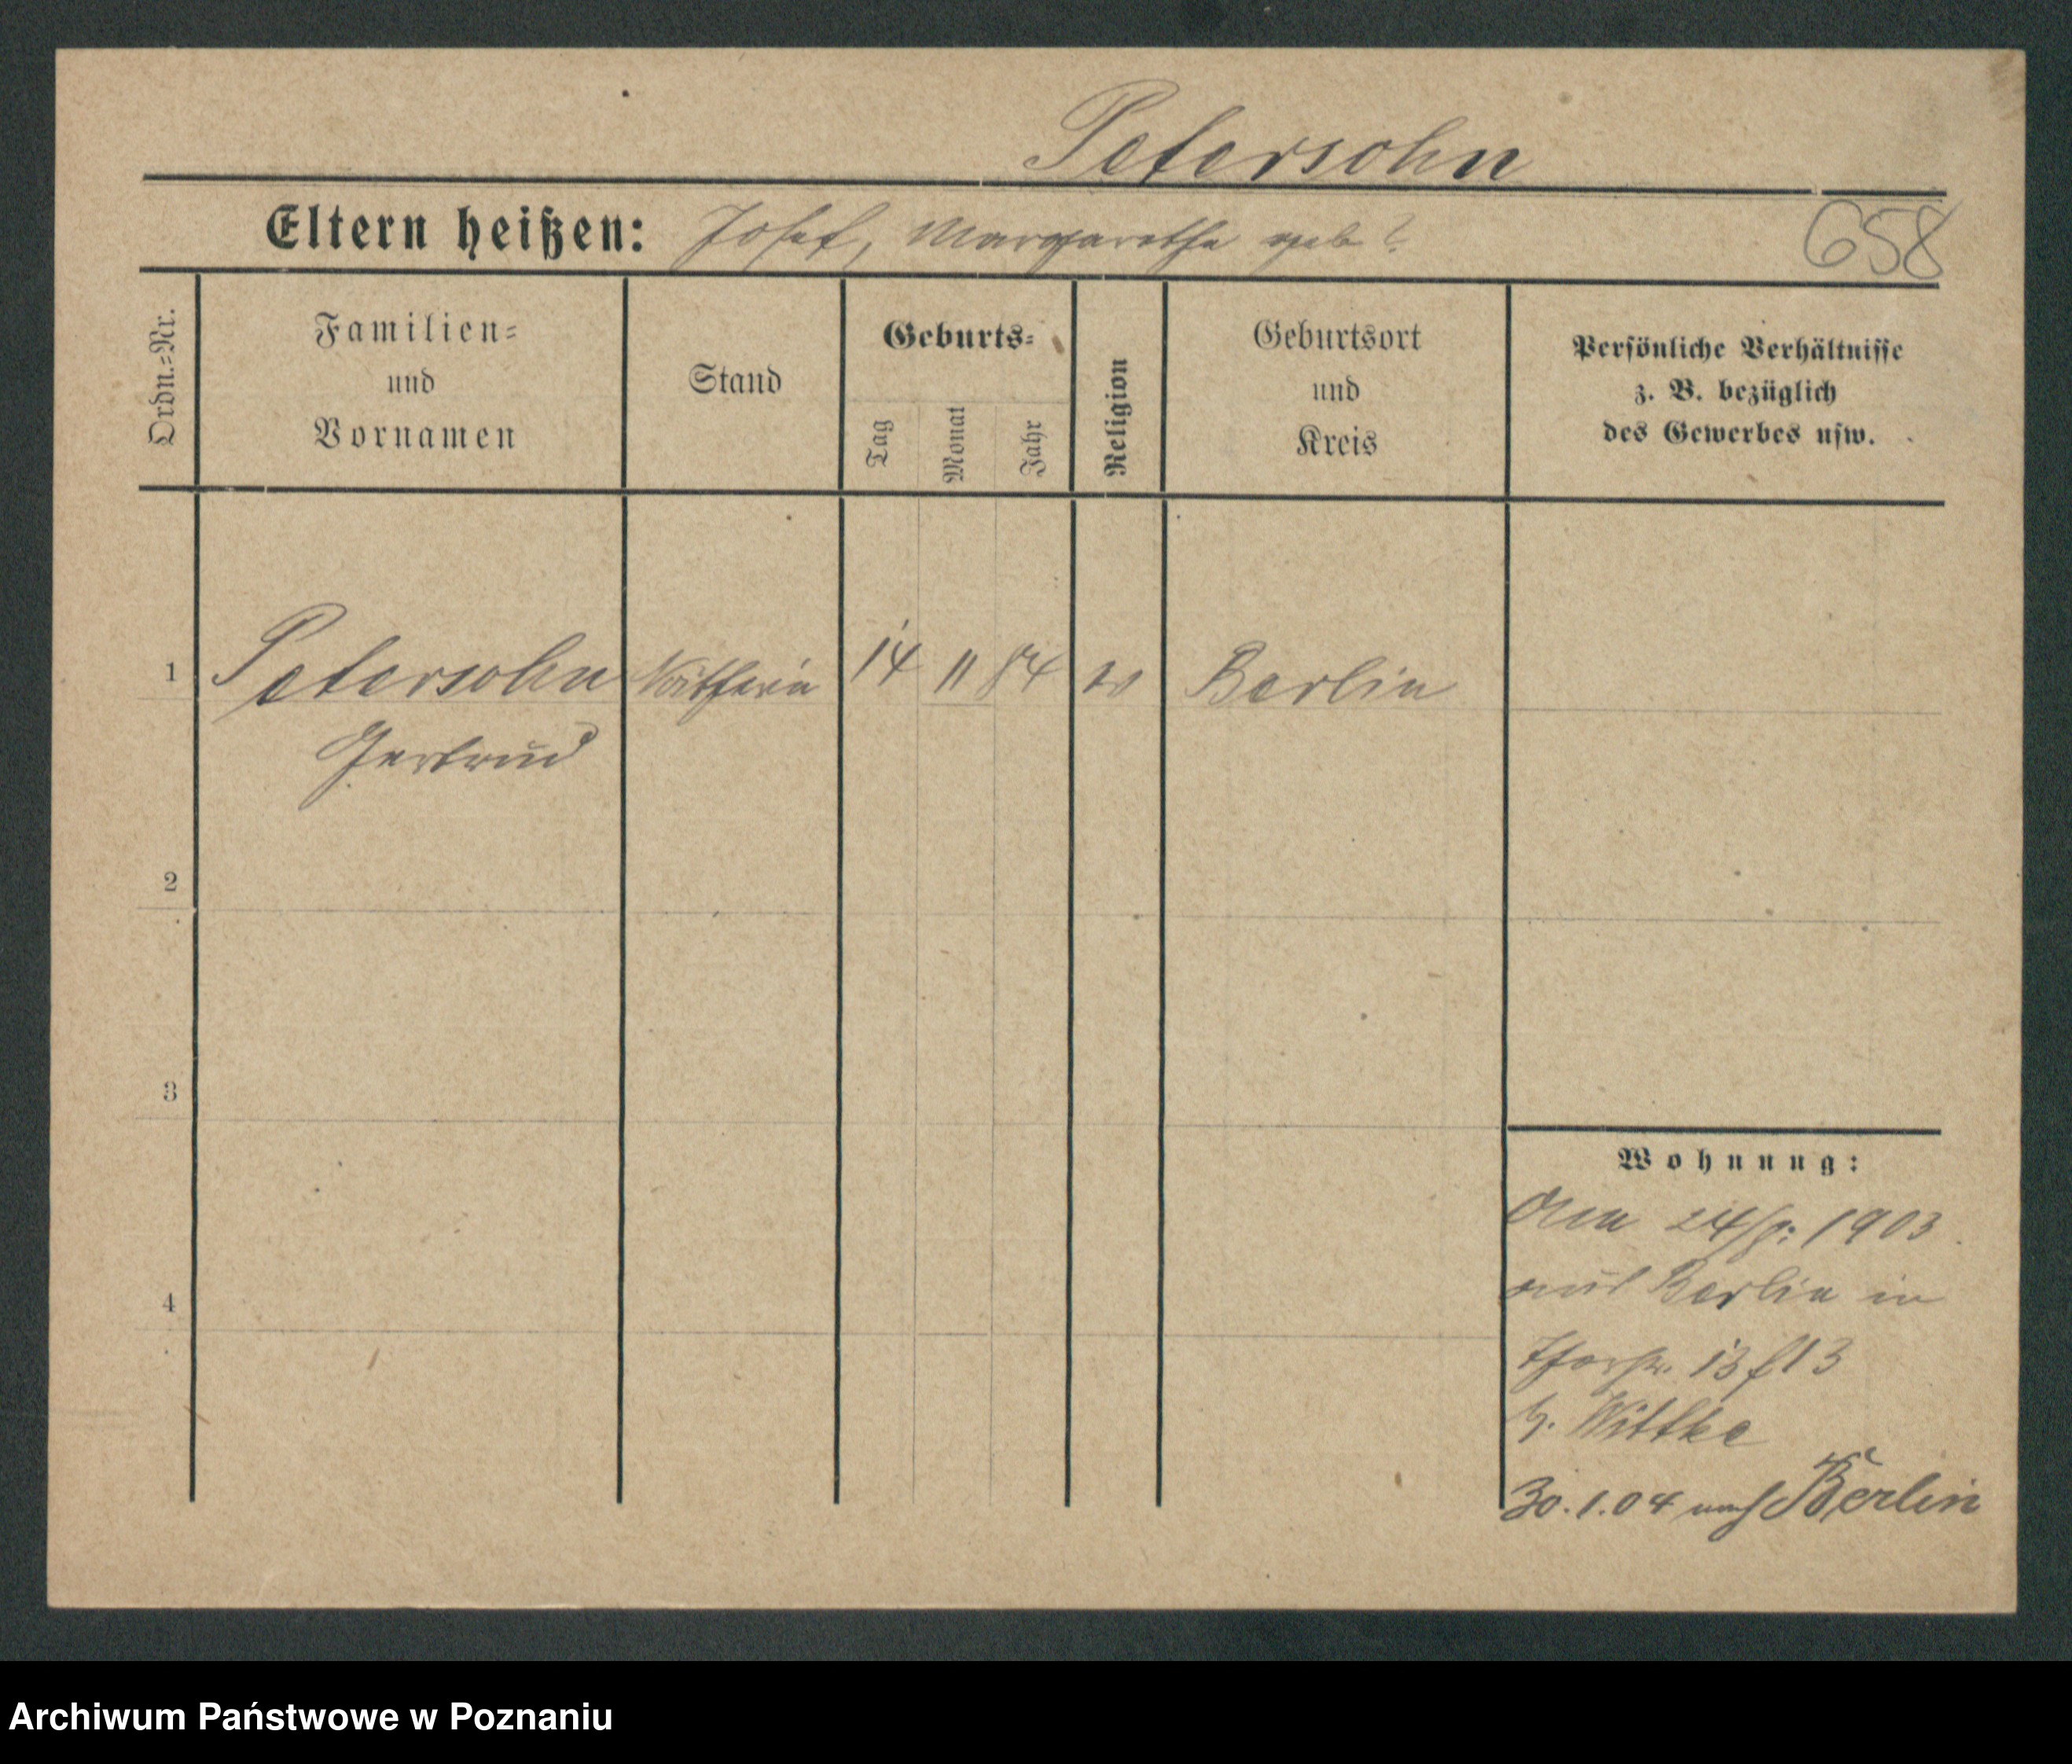 Petersohn
Eltern heißen: Josef, Margarethe geb ?
658
Ordn.=Nr.
Familien=
und
Vornamen
Stand
Geburts=
Tag
Monat
Jahr
Religion
Geburtsort
und
Kreis
Persönliche Verhältnisse
z. B. bezüglich
des Gewerbes usw.
1 Petersohn 14 11 84 Berlin
Gertrud
2
3
4
Wohnung:
Am 1903
aus Berlin in
Thorstr. 13
b. Wittke
30.1.04 nach Berlin
Archiwum Państwowe w Poznaniu